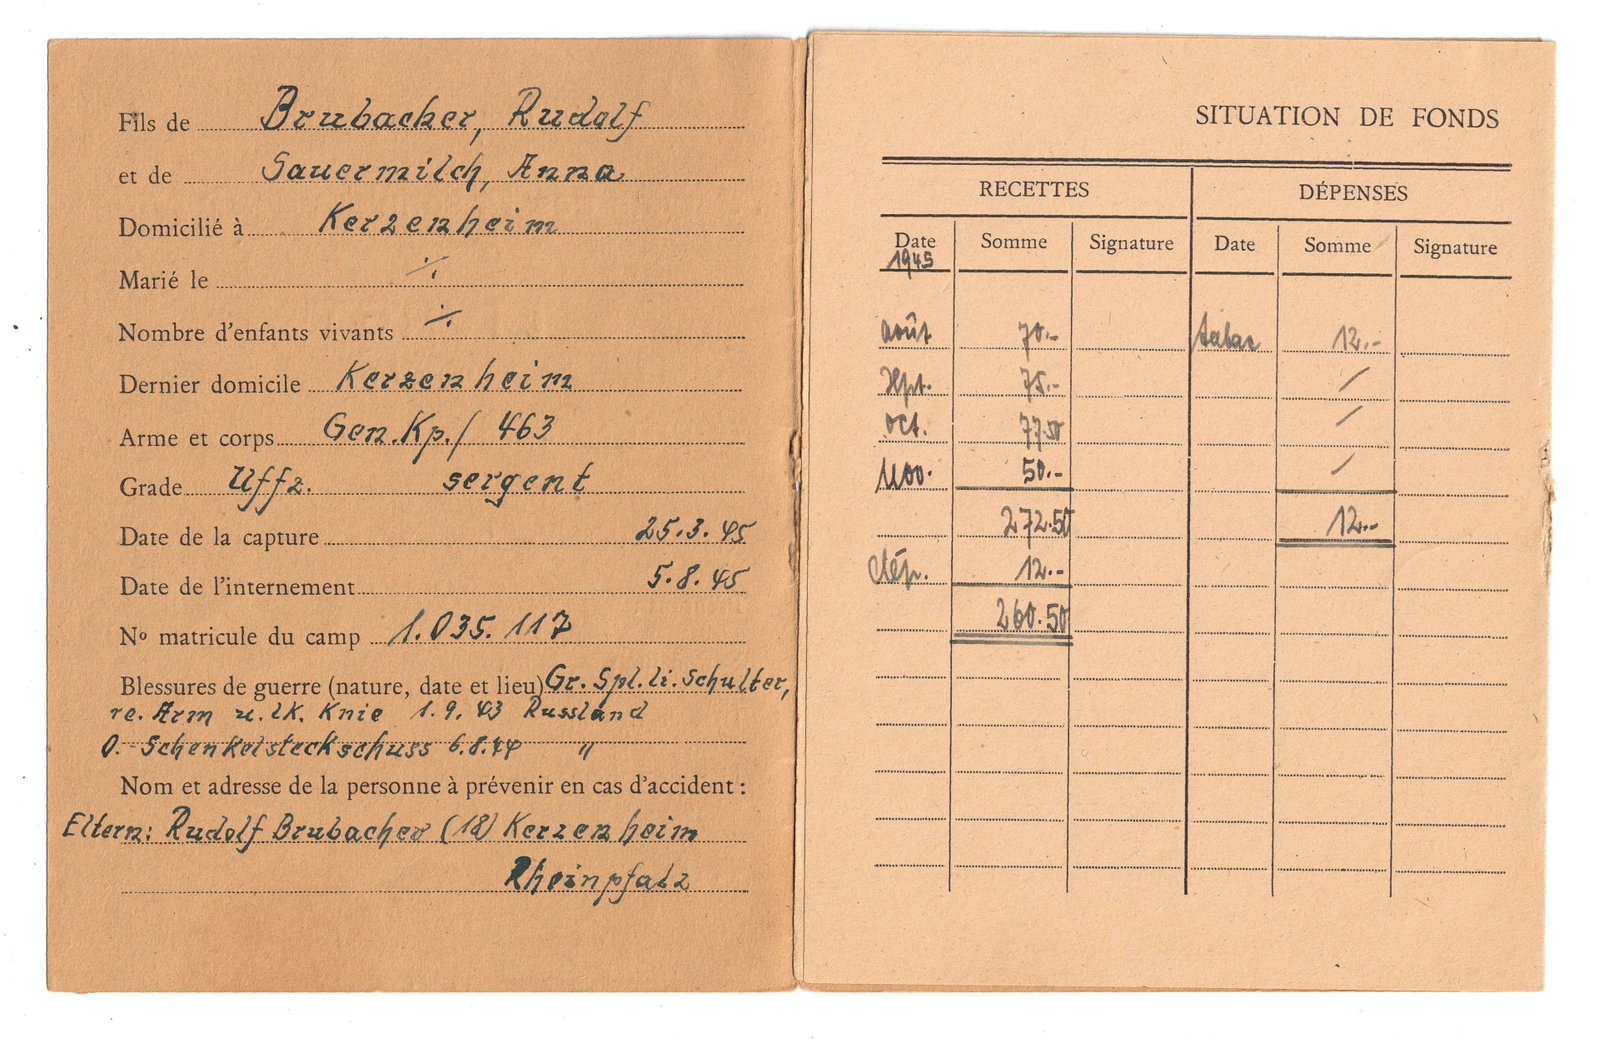 Fils de Brubacher, Rudolf
et de Sauermilch, Anna
Domicilié à Kerzenheim
Marié le ./.
Nombre d'enfants vivants ./.
Dernier domicile Kerzenheim
Arme et corps Gen.Kp./ 463
Grade Uffz. sergent
Date de la capture 25.3.45
Date de l'internement 5.8.45
Nº matricule du camp 1.035.117
Blessures de guerre (nature, date et lieu) Gr. Spl. li. Schulter,
re. Arm u. lk. Knie 1.9.43 Russland
O. Schenkelsteckschuss 6.8.44 "
Nom et adresse de la personne à prévenir en cas d'accident :
Eltern: Rudolf Brubacher (18) Kerzenheim
Rheinpfalz
SITUATION DE FONDS
RECETTES DÉPENSES
Date Somme Signature Date Somme Signature
1945
août 70.- tabac 12.-
Spt. 75.- /
oct. 77.50 /
Nov. 50.- /
272.50 12.-
dép. 12.-
260.50